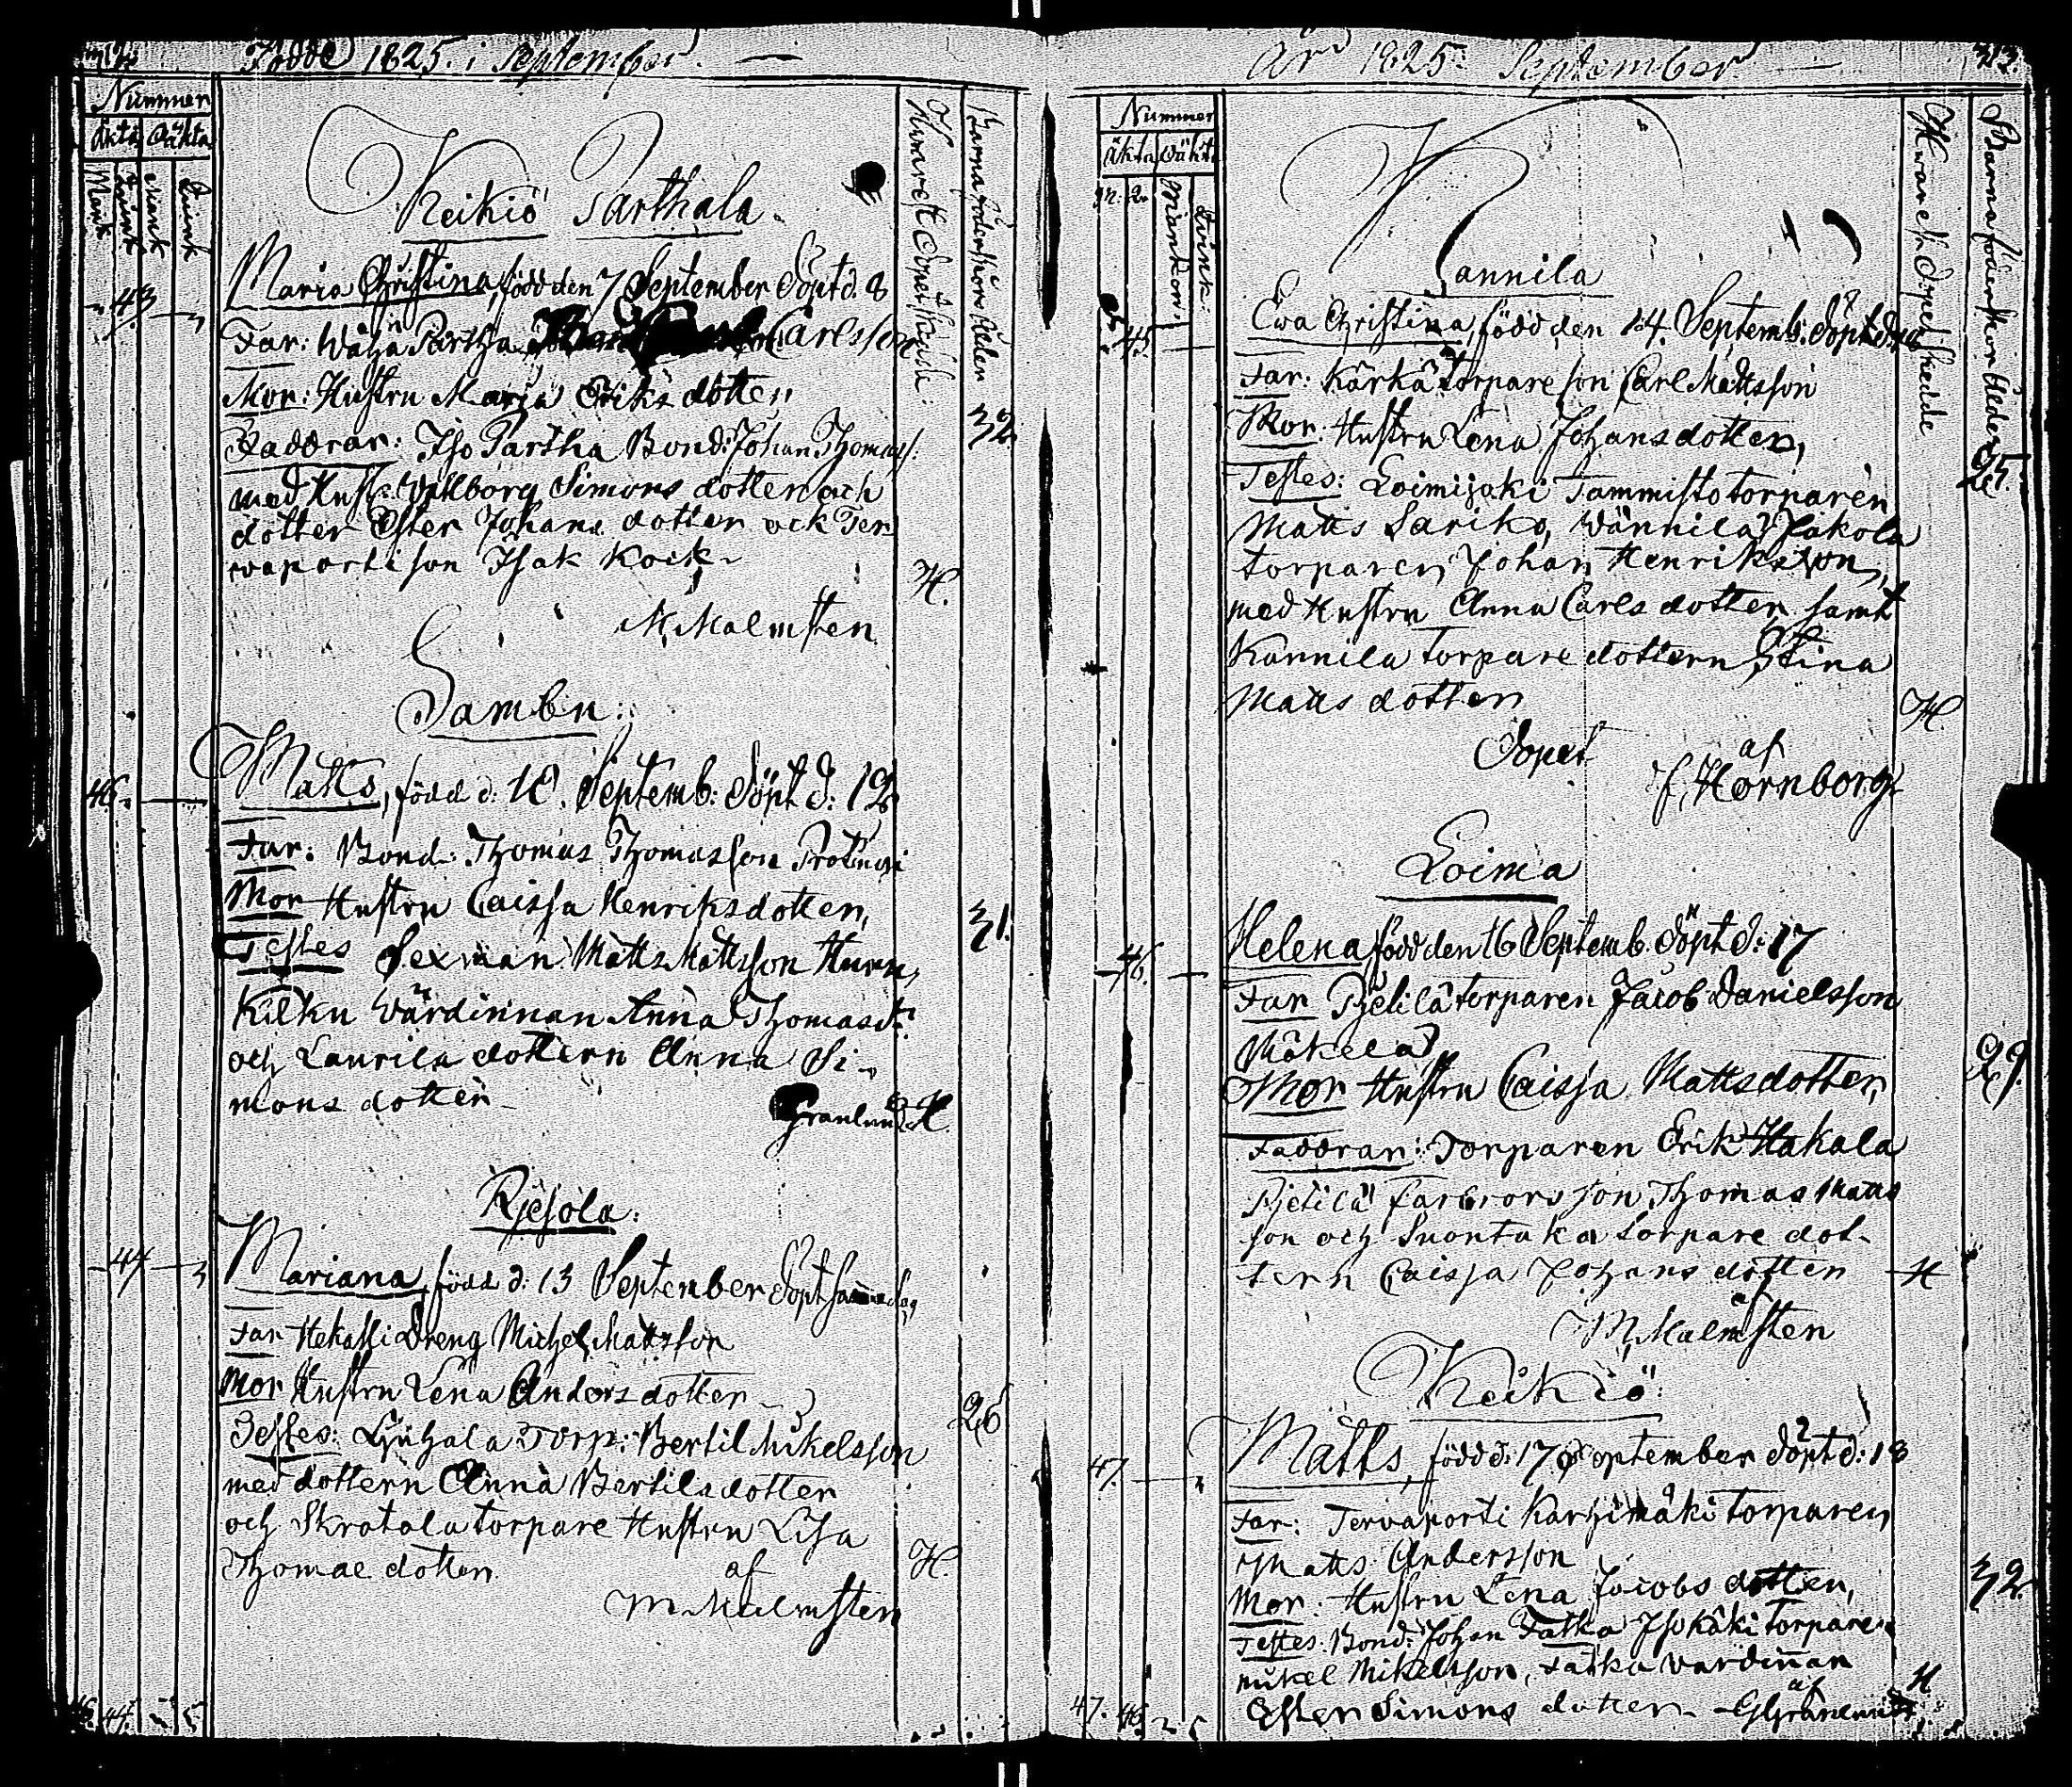 Födde 1825. i September.
Nummer
Äkta Oäkta
Mank
Qvink
Mank
Qvink
Hwarest Dopet skedde.
Barnaföderskors Ålder
Keikiö Parthala.
43
Maria Christina, född den 7 September Döpt d. 8
Far: Wähä Partha Carlsson
Mor: Hustru Maria Eriks dotter
Faddrar: Iso Partha Bond: Johan Thomass:
32
med Hust: Wallborg Simons dotter och
dotter Ester Johans dotter ock Ter
vaporti son Isak Koik
H.
M. Malmsten
Sambu:
46.
Matts, född d: 10. Septemb: Döpt d: 12
Far: Bond: Thomas Thomasson
Mor Hustru Caisa Henriksdotter,
31.
Testes Sexman Matts Mattsson
Kilku Wärdinnan Anna Thomasd:
och Laurila dottern Anna Si-
mons dotter
Granlund H.
Rjesola:
44
Mariana, född d: 13 September Döpt samma dag
Far Hekalli Dreng Michel Mattsson
Mor Hustru Lena Anders dotter
26
Testes: Torp: Bertil Mikelsson
med dottern Anna Bertilsdotter
och Skrotala torpare Hustru Lisa
Thomae dotter.
H.
af
M. Malmsten
44.
År 1825. September
313.
Nummer
Äkta Oäkta
m. q.
Mankön
Qvink:
Hwarest Dopet skedde
Barnaföderskors Ålder
Kannila
45
Ewa Christina, född den 14. Septemb: Döpt d:
Far: Kärkä torpare son Carl Mattsson
Mor: Hustru Lena Johansdotter,
25.
Testes: Loimijoki Tammisto torparen
Matts Sariko, Wännilä Jakola
torparen Johan Henriksson,
med Hustru Anna Carlsdotter samt
Kannila torpare dottern Stina
Matts dotter
H.
Döpet
af
F. Hornborg
Loima
46.
Helena född den 16 Septemb. döpt d: 17
Far Pjetilä torparen Jacob Danielsson
Mäkelä
29.
Mor Hustru Caisa Mattsdotter,
Faddrar: Torparen Erik Hakala
Pjetilä farbrors son Thomas Matts
son och Suontaka torpare dot-
tern Caisa Johans dotter
H
af
M. Malmsten
Keikiö
47.
Matts, född d: 17 September döpt d: 18
Far: Tervaporti Karhimäki torparen
Matts Andersson
32
Mor: Hustru Lena Jacobs dotter,
Testes: Bond: Johan Fatka Isokäki torparen
Mikel Mikelsson, Fatka värdinnan
H
Ester Simons dotter
af
47. 46.